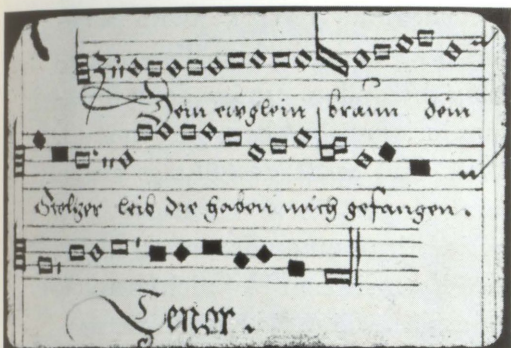 Dein ewglein braun dein
Stolzer leib die haben mich gefangen.
Tenor.